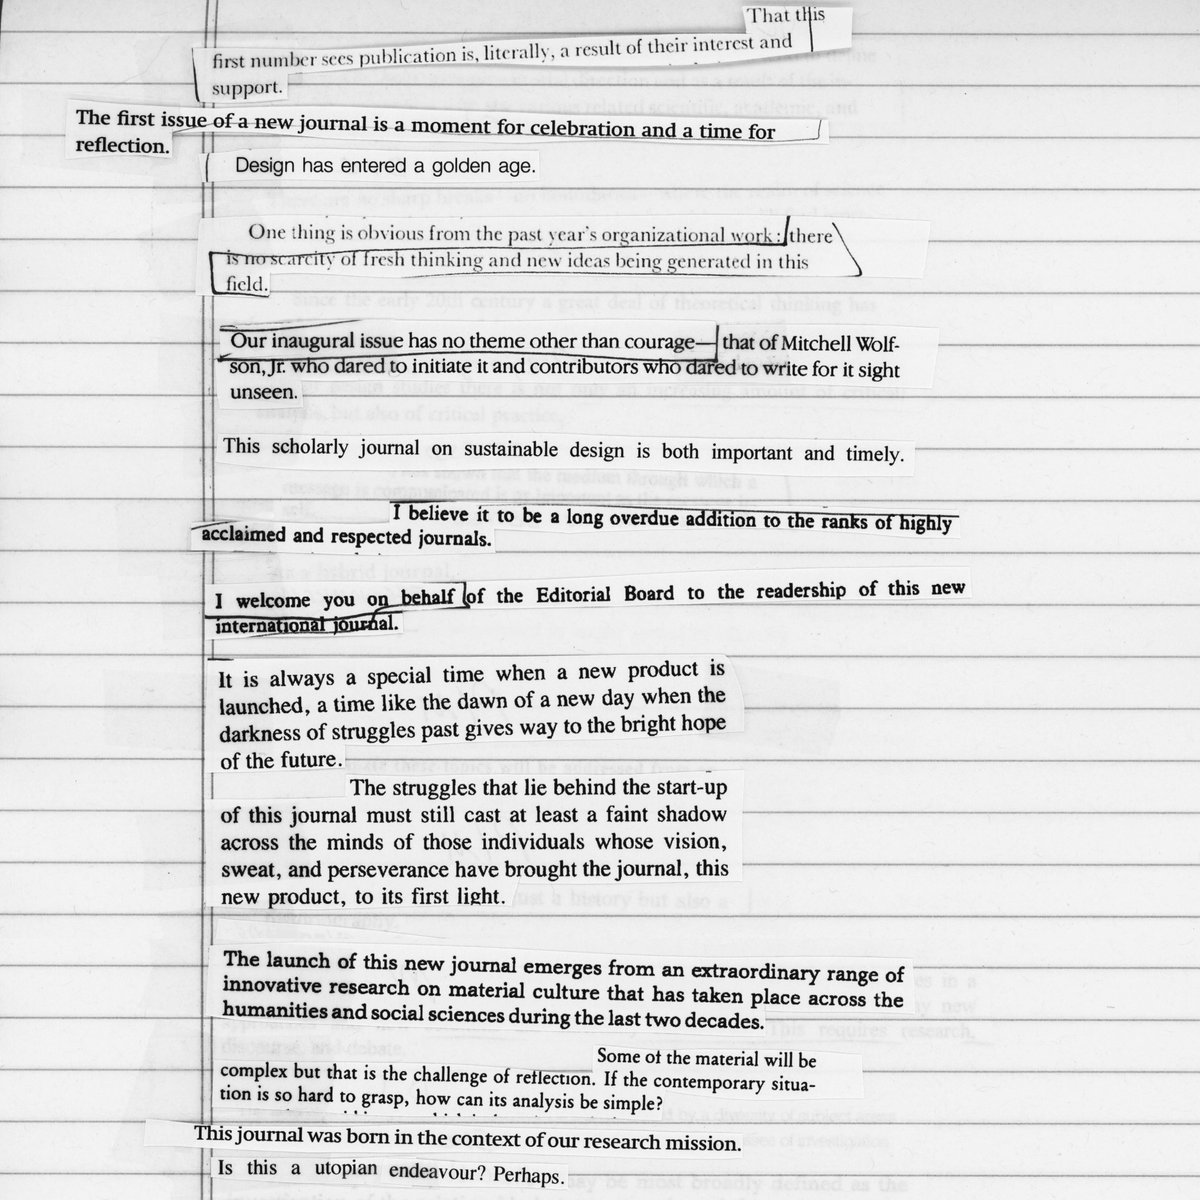 That this
first number sees publication is, literally, a result of their interest and
support.
The first issue of a new journal is a moment for celebration and a time for
reflection.
Design has entered a golden age.
One thing is obvious from the past year's organizational work: there
is no scarcity of fresh thinking and new ideas being generated in this
field.
Our inaugural issue has no theme other than courage— that of Mitchell Wolf-
son, Jr. who dared to initiate it and contributors who dared to write for it sight
unseen.
This scholarly journal on sustainable design is both important and timely.
I believe it to be a long overdue addition to the ranks of highly
acclaimed and respected journals.
I welcome you on behalf of the Editorial Board to the readership of this new
international journal.
It is always a special time when a new product is
launched, a time like the dawn of a new day when the
darkness of struggles past gives way to the bright hope
of the future.
The struggles that lie behind the start-up
of this journal must still cast at least a faint shadow
across the minds of those individuals whose vision,
sweat, and perseverance have brought the journal, this
new product, to its first light.
The launch of this new journal emerges from an extraordinary range of
innovative research on material culture that has taken place across the
humanities and social sciences during the last two decades.
Some of the material will be
complex but that is the challenge of reflection. If the contemporary situa-
tion is so hard to grasp, how can its analysis be simple?
This journal was born in the context of our research mission.
Is this a utopian endeavour? Perhaps.